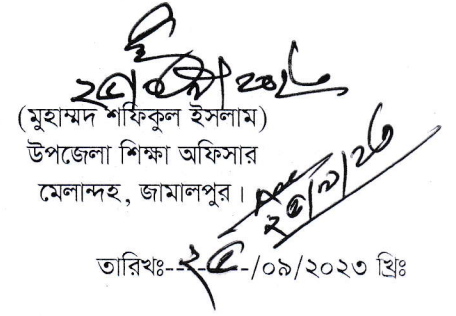 ২৫/০৯/২০২৩
(মুহাম্মদ শফিকুল ইসলাম)
উপজেলা শিক্ষা অফিসার
মেলান্দহ, জামালপুর।
২৫/৯/২৩
তারিখঃ--২৫-/০৯/২০২৩ খ্রিঃ